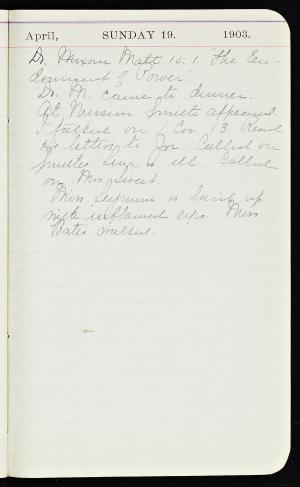 April, SUNDAY 19. 1903.
Dr. Mixom Matt 10:1. "The En-
dowment of Power".
Dr. M. came to dinner.
At Mission Smith appeared.
I talked on I Cor. 13. Read
letter to Called on
Smiths is ill Called
on Mrs. Sweet.
Miss is laid up
with inflamed eyes. Miss
Bates